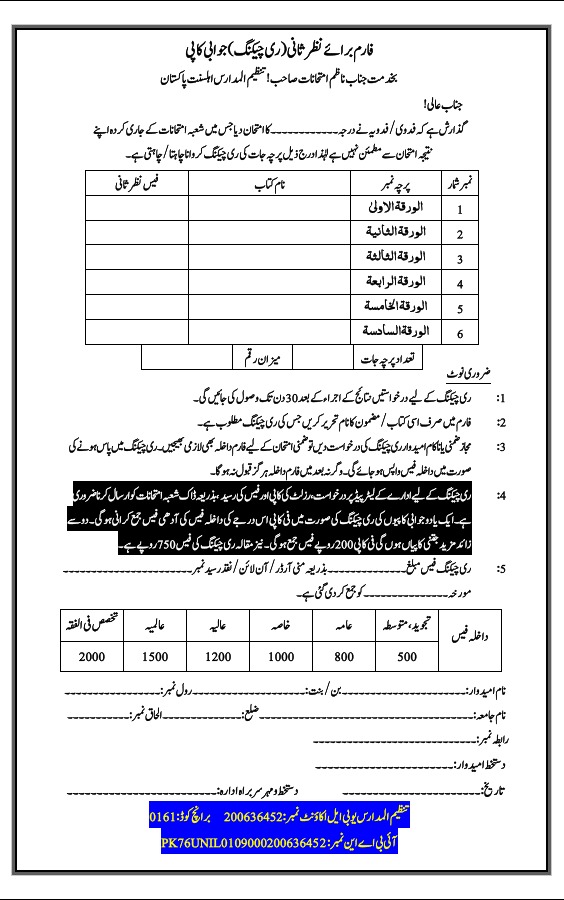 فارم برائے نظر ثانی (ری چیکنگ) جوابی کاپی
بخدمت جناب ناظم امتحانات صاحب! تنظیم المدارس اہلسنت پاکستان
جناب عالی!
گذارش ہے کہ فدوی/فدویہ نے درجہ ------------ کا امتحان دیا جس میں شعبہ امتحانات کے جاری کردہ اپنے
نتیجہ امتحان سے مطمئن نہیں ہے لہٰذا درج ذیل پرچہ جات کی ری چیکنگ کروانا چاہتا/چاہتی ہے۔
نمبر شمار پرچہ نمبر نام کتاب فیس نظر ثانی
1 الورقة الاولىٰ
2 الورقة الثانية
3 الورقة الثالثة
4 الورقة الرابعة
5 الورقة الخامسة
6 الورقة السادسة
تعداد پرچہ جات میزان رقم
ضروری نوٹ
1: ری چیکنگ کے لیے درخواستیں نتائج کے اجراء کے بعد 30 دن تک وصول کی جائیں گی۔
2: فارم میں صرف اسی کتاب/مضمون کا نام تحریر کریں جس کی ری چیکنگ مطلوب ہے۔
3: مجاز ضمنی یا ناکام امیدوار ری چیکنگ کی درخواست دیں تو ضمنی امتحان کے لیے فارم داخلہ بھی لازمی بھیجیں۔ ری چیکنگ میں پاس ہونے کی
صورت میں داخلہ فیس واپس ہو جائے گی۔ وگرنہ بعد میں فارم داخلہ ہرگز قبول نہ ہوگا۔
4: ری چیکنگ کے لیے ادارے کے لیٹر پیڈ پر درخواست، رزلٹ کی کاپی اور فیس کی رسید بذریعہ ڈاک شعبہ امتحانات کو ارسال کرنا ضروری
ہے۔ ایک یا دو جوابی کاپیوں کی ری چیکنگ کی صورت میں فی کاپی اس درجے کی داخلہ فیس کی آدھی فیس جمع کرانی ہوگی۔ دو سے
زائد مزید جتنی کاپیاں ہوں گی فی کاپی 200 روپے فیس جمع ہوگی۔ نیز مقالہ ری چیکنگ کی فیس 750 روپے ہے۔
5: ری چیکنگ فیس مبلغ -------------- بذریعہ منی آرڈر/آن لائن/نقد رسید نمبر ----------------------
مورخہ -------------- کو جمع کر دی گئی ہے۔
داخلہ فیس تجوید، متوسطہ عامہ خاصہ عالیہ عالمیہ تخصص فی الفقہ
500 800 1000 1200 1500 2000
نام امیدوار: ---------------------- بن/بنت: ------------------- رول نمبر: ----------------
نام جامعہ: ------------------------------------ ضلع: ------------- الحاق نمبر: -----------
رابطہ نمبر: ----------------------------
دستخط امیدوار: ------------------------
تاریخ: ----------------------- دستخط و مہر سربراہ ادارہ: -------------------------
تنظیم المدارس یو بی ایل اکاؤنٹ نمبر: 200636452 برانچ کوڈ: 0161
آئی بی اے این نمبر: PK76UNIL0109000200636452